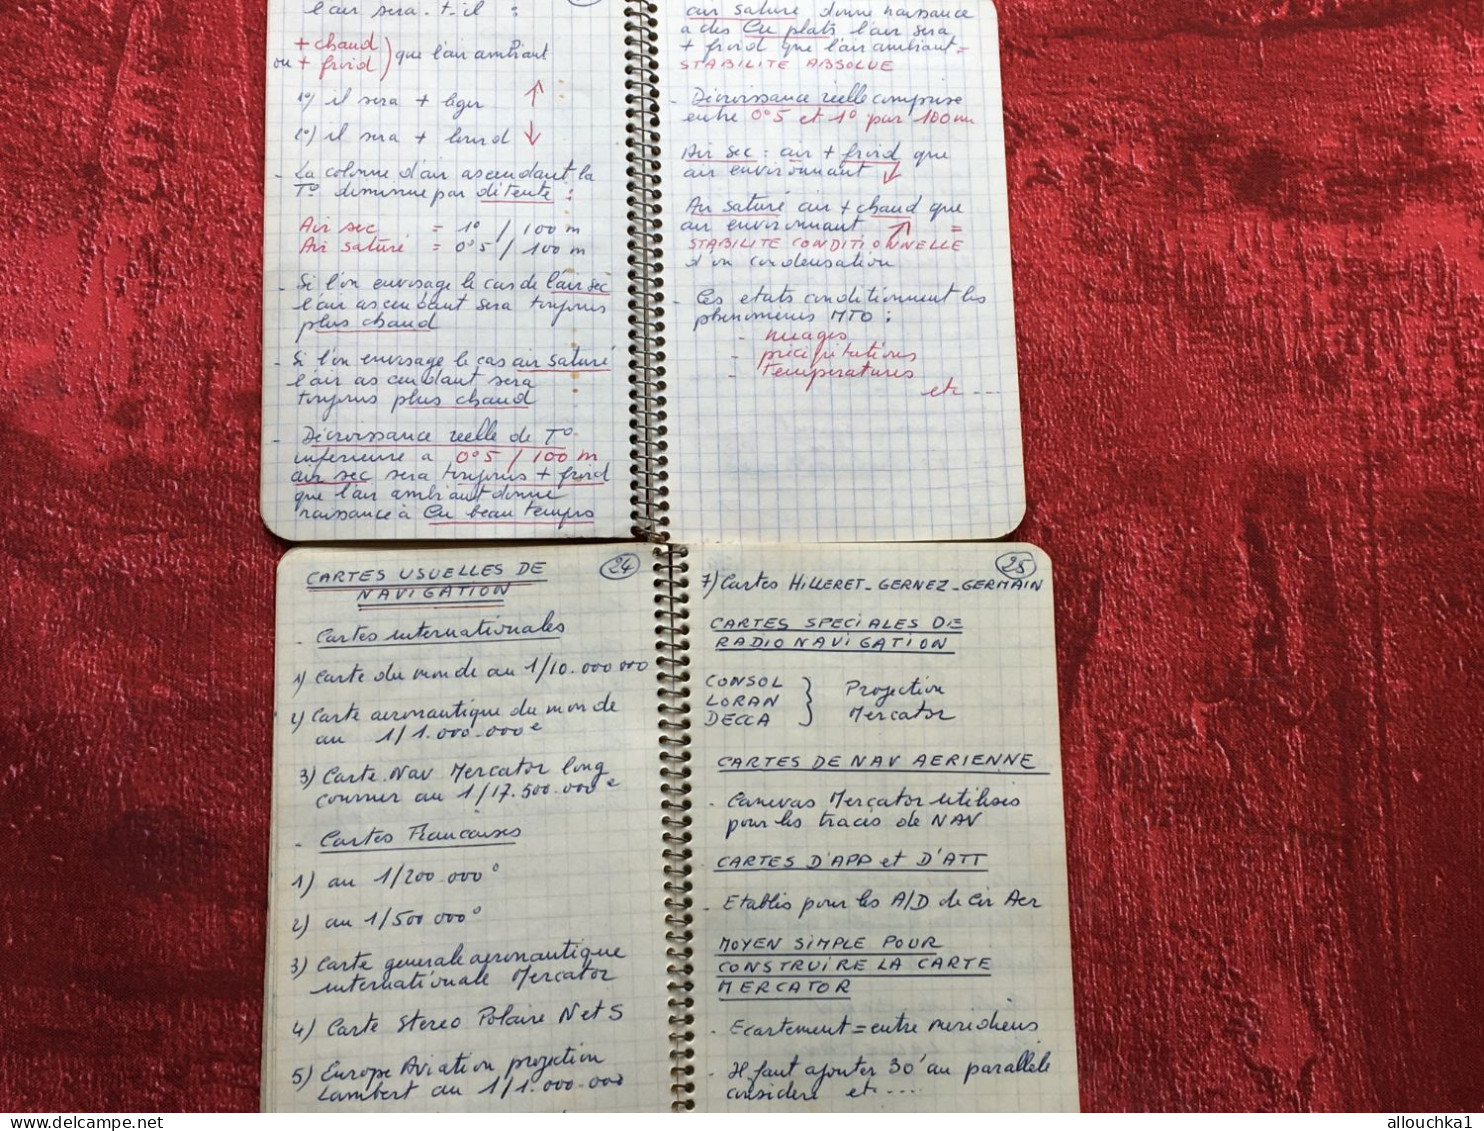 l'air sera-t-il :
+ chaud
ou + froid ) que l'air ambiant
1°) il sera + leger ↑
2°) il sera + lourd ↓
- La colonne d'air ascendant la
T° diminue par détente :
Air sec = 1° / 100 m
Air saturé = 0°5 / 100 m
- Si l'on envisage le cas de l'air sec
l'air ascendant sera toujours
plus chaud
- Si l'on envisage le cas air saturé
l'air ascendant sera
toujours plus chaud
- Décroissance réelle de T°
inférieure a 0°5 / 100 m
air sec sera toujours + froid
que l'air ambiant donne
naissance à Cu beau temps
air saturé donne naissance
a des Cu plats l'air sera
+ froid que l'air ambiant =
STABILITE ABSOLUE
- Décroissance réelle comprise
entre 0°5 et 1° par 100 m
Air sec : air + froid que
air environnant ↓
Air saturé air + chaud que
air environnant ↑ =
STABILITE CONDITIONNELLE
d'un condensation
- Ces etats conditionnent les
phenomenes MTO :
- nuages
- précipitations
- températures
etc ....
24
CARTES USUELLES DE
NAVIGATION
- Cartes internationales
1) Carte du monde au 1/10.000 000
2) Carte aeronautique du monde
au 1/1.000.000e
3) Carte Nav Mercator long
courrier au 1/17.500.000e
- Cartes Francaises
1) au 1/200.000°
2) au 1/500 000°
3) Carte generale aeronautique
internationale Mercator
4) Carte Stereo Polaire N et S
5) Europe Aviation projection
Lambert au 1/1.000.000
25
7) Cartes HILLERET-GERNEZ-GERMAIN
CARTES SPECIALES DE
RADIO NAVIGATION
CONSOL
LORAN
DECCA
} Projection
Mercator
CARTES DE NAV AERIENNE
- Canevas Mercator utilisés
pour les tracés de NAV
CARTES D'APP et D'ATT
- Etablis pour les A/D de Cir Aer
MOYEN SIMPLE POUR
CONSTRUIRE LA CARTE
MERCATOR
- Ecartement = entre meridiens
- Il faut ajouter 30' au parallèle
considéré etc ....
allouchka1